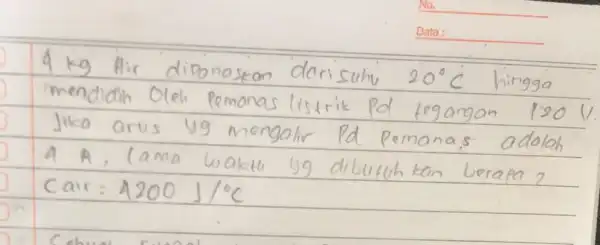 No.
Date :
4 kg Air dipanaskan dari suhu 20°C hingga
mendidih Oleh Pemanas listrik Pd tegangan 120 V.
Jika arus yg mengalir Pd Pemanas adalah
4 A, lama waktu yg dibutuhkan berapa?
C air : 4200 J/°C